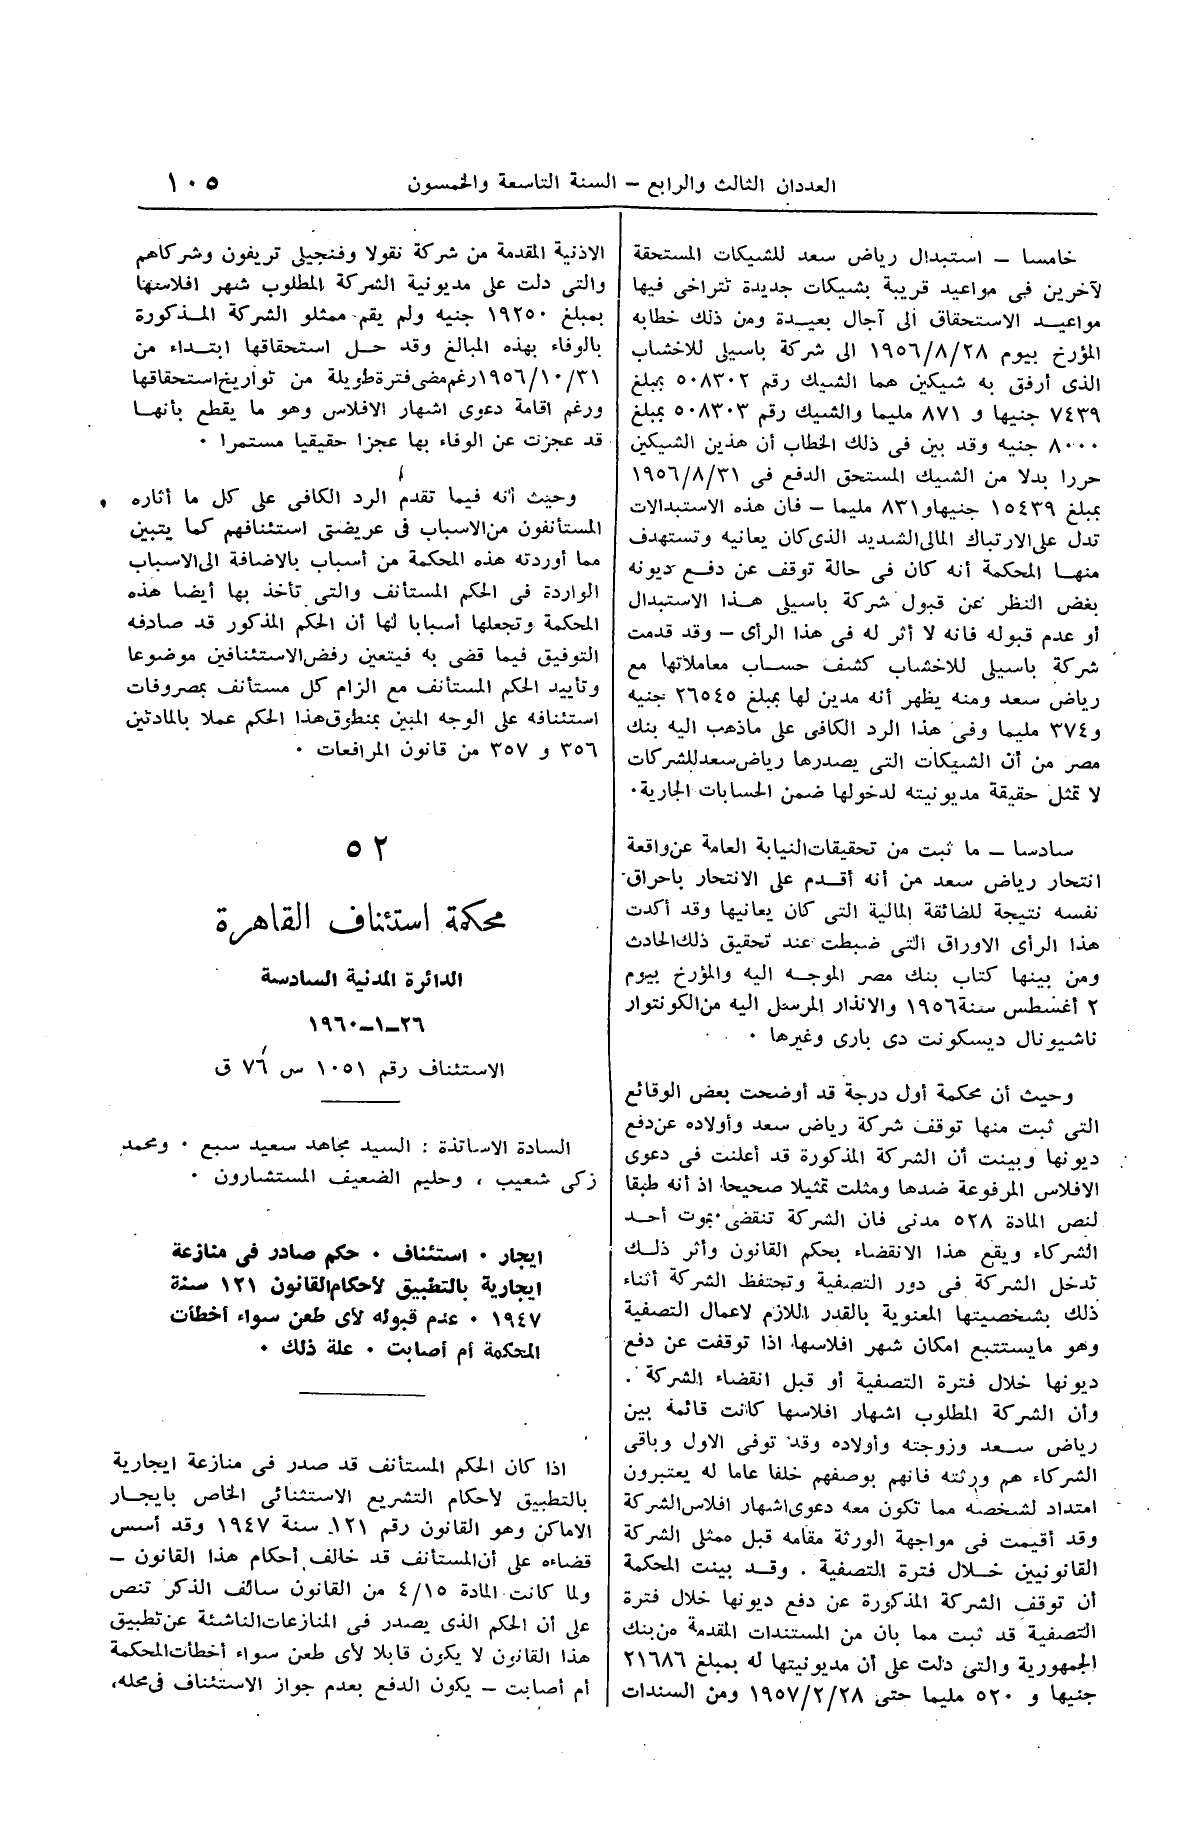 العددان الثالث والرابع – السنة التاسعة والخمسون
١٠٥
خامسا – استبدال رياض سعد للشيكات المستحقة
لآخرين فى مواعيد قريبة بشيكات جديدة تتراخى فيها
مواعيد الاستحقاق الى آجال بعيدة ومن ذلك خطابه
المؤرخ بيوم ١٩٥٦/٨/٢٨ الى شركة باسيلى للاخشاب
الذى أرفق به شيكين هما الشيك رقم ٥٠٨٣٠٢ بمبلغ
٧٤٣٩ جنيها و ٨٧١ مليما والشيك رقم ٥٠٨٣٠٣ بمبلغ
٨٠٠٠ جنيه وقد بين فى ذلك الخطاب أن هذين الشيكين
حررا بدلا من الشيك المستحق الدفع فى ١٩٥٦/٨/٣١
بمبلغ ١٥٤٣٩ جنيها و٨٣١ مليما – فان هذه الاستبدالات
تدل على الارتباك المالى الشديد الذى كان يعانيه وتستهدف
منها المحكمة أنه كان فى حالة توقف عن دفع ديونه
بغض النظر عن قبول شركة باسيلى هذا الاستبدال
أو عدم قبوله فانه لا أثر له فى هذا الرأى – وقد قدمت
شركة باسيلى للاخشاب كشف حساب معاملاتها مع
رياض سعد ومنه يظهر أنه مدين لها بمبلغ ٢٦٥٤٥ جنيه
و٣٧٤ مليما وفى هذا الرد الكافى على ماذهب اليه بنك
مصر من أن الشيكات التى يصدرها رياض سعد للشركات
لا تمثل حقيقة مديونيته لدخولها ضمن الحسابات الجارية .
سادسا – ما ثبت من تحقيقات النيابة العامة عن واقعة
انتحار رياض سعد من أنه أقدم على الانتحار باحراق
نفسه نتيجة للضائقة المالية التى كان يعانيها وقد أكدت
هذا الرأى الاوراق التى ضبطت عند تحقيق ذلك الحادث
ومن بينها كتاب بنك مصر الموجه اليه والمؤرخ بيوم
٢ أغسطس سنة ١٩٥٦ والانذار المرسل اليه من الكونتوار
ناشيونال ديسكونت دى بارى وغيرها .
وحيث أن محكمة أول درجة قد أوضحت بعض الوقائع
التى ثبت منها توقف شركة رياض سعد وأولاده عن دفع
ديونها وبينت أن الشركة المذكورة قد أعلنت فى دعوى
الافلاس المرفوعة ضدها ومثلت تمثيلا صحيحا اذ أنه طبقا
لنص المادة ٥٢٨ مدنى فان الشركة تنقضى بموت أحد
الشركاء ويقع هذا الانقضاء بحكم القانون وأثر ذلك
تدخل الشركة فى دور التصفية وتحتفظ الشركة أثناء
ذلك بشخصيتها المعنوية بالقدر اللازم لاعمال التصفية
وهو مايستتبع امكان شهر افلاسها اذا توقفت عن دفع
ديونها خلال فترة التصفية أو قبل انقضاء الشركة .
وأن الشركة المطلوب اشهار افلاسها كانت قائمة بين
رياض سعد وزوجته وأولاده وقد توفى الاول وباقى
الشركاء هم ورثته فانهم بوصفهم خلفا عاما له يعتبرون
امتداد لشخصه مما تكون معه دعوى اشهار افلاس الشركة
وقد أقيمت فى مواجهة الورثة مقامه قبل ممثلى الشركة
القانونيين خلال فترة التصفية . وقد بينت المحكمة
أن توقف الشركة المذكورة عن دفع ديونها خلال فترة
التصفية قد ثبت مما بان من المستندات المقدمة من بنك
الجمهورية والتى دلت على أن مديونيتها له بمبلغ ٢١٦٨٦
جنيها و ٥٢٠ مليما حتى ١٩٥٧/٢/٢٨ ومن السندات
الاذنية المقدمة من شركة نقولا وفنجيلى تريفون وشركاهم
والتى دلت على مديونية الشركة المطلوب شهر افلاسها
بمبلغ ١٩٢٥٠ جنيه ولم يقم ممثلو الشركة المذكورة
بالوفاء بهذه المبالغ وقد حل استحقاقها ابتداء من
١٩٥٦/١٠/٣١ رغم مضى فترة طويلة من تواريخ استحقاقها
ورغم اقامة دعوى اشهار الافلاس وهو ما يقطع بأنها
قد عجزت عن الوفاء بها عجزا حقيقيا مستمرا .
وحيث أنه فيما تقدم الرد الكافى على كل ما أثاره
المستأنفون من الاسباب فى عريضتى استئنافهم كما يتبين
مما أوردته هذه المحكمة من أسباب بالاضافة الى الاسباب
الواردة فى الحكم المستأنف والتى تأخذ بها أيضا هذه
المحكمة وتجعلها أسبابا لها أن الحكم المذكور قد صادفه
التوفيق فيما قضى به فيتعين رفض الاستئنافين موضوعا
وتأييد الحكم المستأنف مع الزام كل مستأنف بمصروفات
استئنافه على الوجه المبين بمنطوق هذا الحكم عملا بالمادتين
٣٥٦ و ٣٥٧ من قانون المرافعات .
٥٢
محكمة استئناف القاهرة
الدائرة المدنية السادسة
٢٦–١–١٩٦٠
الاستئناف رقم ١٠٥١ س ٧٦ ق
السادة الاساتذة : السيد مجاهد سعيد سبع . ومحمد
زكى شعيب ، وحليم الضعيف المستشارون .
ايجار . استئناف . حكم صادر فى منازعة
ايجارية بالتطبيق لأحكام القانون ١٢١ سنة
١٩٤٧ . عدم قبوله لأى طعن سواء أخطأت
المحكمة أم أصابت . علة ذلك .
اذا كان الحكم المستأنف قد صدر فى منازعة ايجارية
بالتطبيق لأحكام التشريع الاستثنائى الخاص بايجار
الاماكن وهو القانون رقم ١٢١ سنة ١٩٤٧ وقد أسس
قضاءه على أن المستأنف قد خالف أحكام هذا القانون –
ولما كانت المادة ٤/١٥ من القانون سالف الذكر تنص
على أن الحكم الذى يصدر فى المنازعات الناشئة عن تطبيق
هذا القانون لا يكون قابلا لأى طعن سواء أخطأت المحكمة
أم أصابت – يكون الدفع بعدم جواز الاستئناف فى محله،